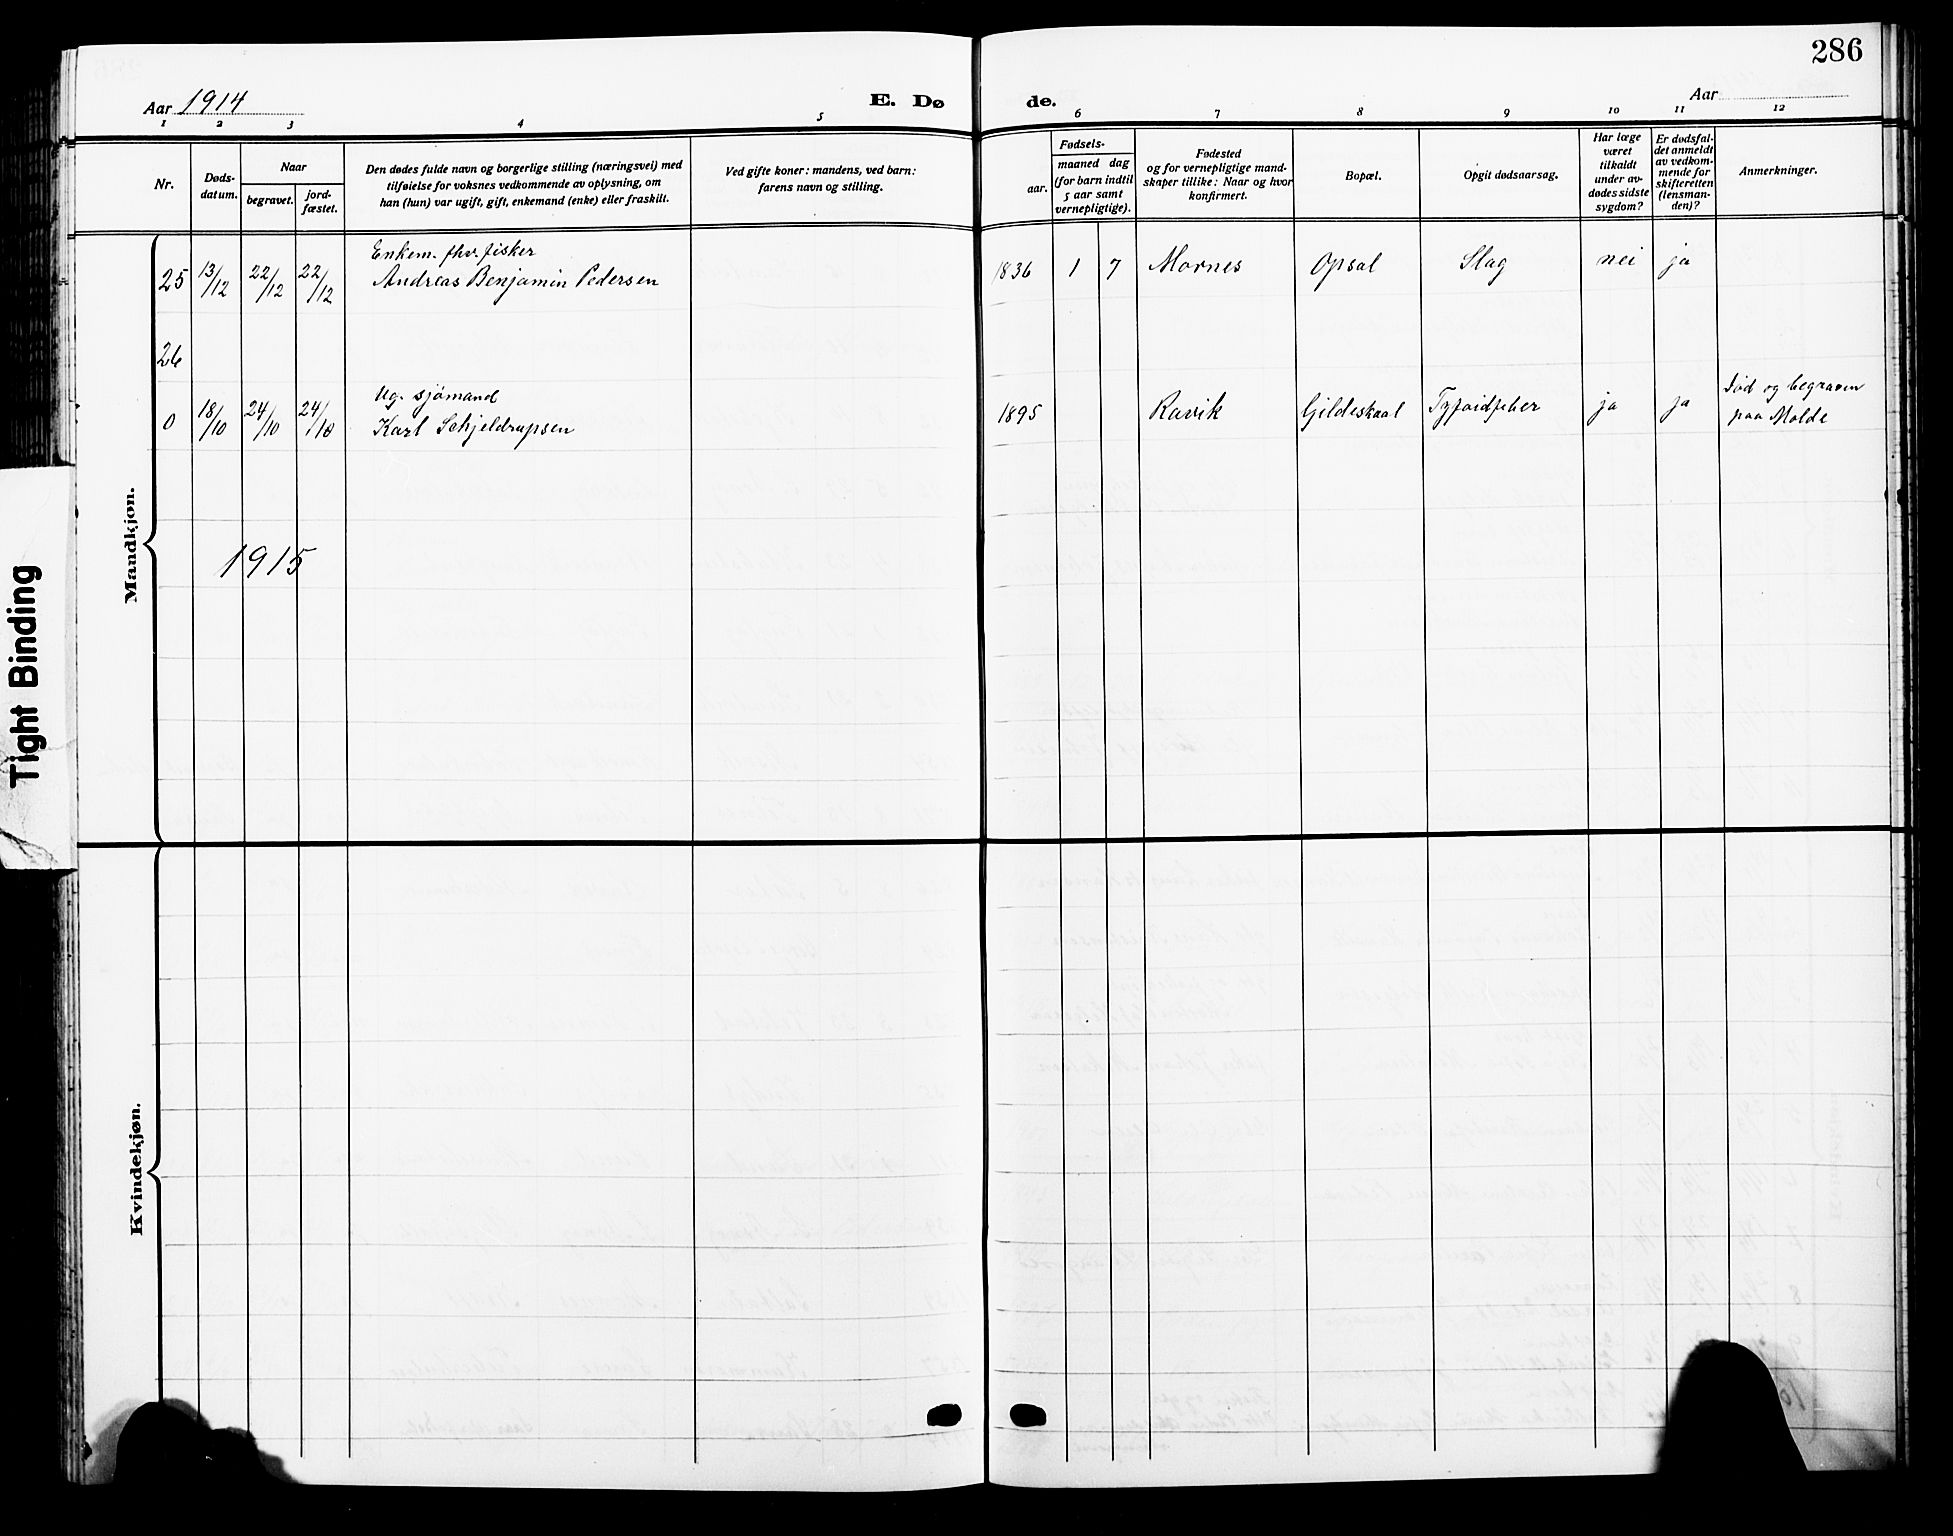 286
Aar 1914
E. Dø
de.
Aar
1 2 3 4 5 6 7 8 9 10 11 12
Nr.
Døds-
datum.
Naar
begravet.
jord-
fæstet.
Den dødes fulde navn og borgerlige stilling (næringsvei) med
tilføielse for voksnes vedkommende av oplysning, om
han (hun) var ugift, gift, enkemand (enke) eller fraskilt.
Ved gifte koner: mandens, ved barn:
farens navn og stilling.
Fødsels-
aar.
maaned dag
(for barn indtil
5 aar samt
vernepligtige).
Fødested
og for vernepligtige mand-
skaper tillike: Naar og hvor
konfirmert.
Bopæl.
Opgit dødsaarsag.
Har læge
været
tilkaldt
under av-
dødes sidste
sygdom?
Er dødsfal-
det anmeldt
av vedkom-
mende for
skifteretten
(lensman-
den)?
Anmerkninger.
Mandkjøn.
Enkem. fhv. fisker
25 13/12 22/12 22/12 Andreas Benjamin Pedersen 1836 1 7 Mornes Opsal Slag nei ja
26
Ug. sjømand
0 18/10 24/10 24/10 Karl Schjeldrupsen 1895 Ravik Gildeskaal Tyfoidfeber ja ja Død og begraven
paa Molde
1915
Kvindekjøn.
Tight Binding